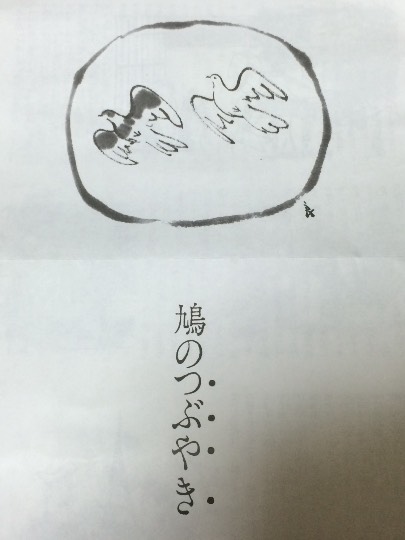 鳩のつぶやき